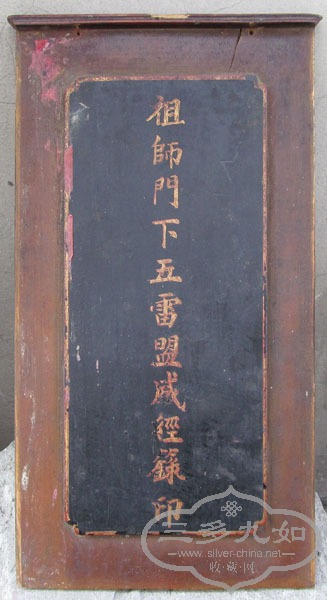 祖師門下五雷盟威經籙印
三多九如
www.silver-china.net
收·藏·网